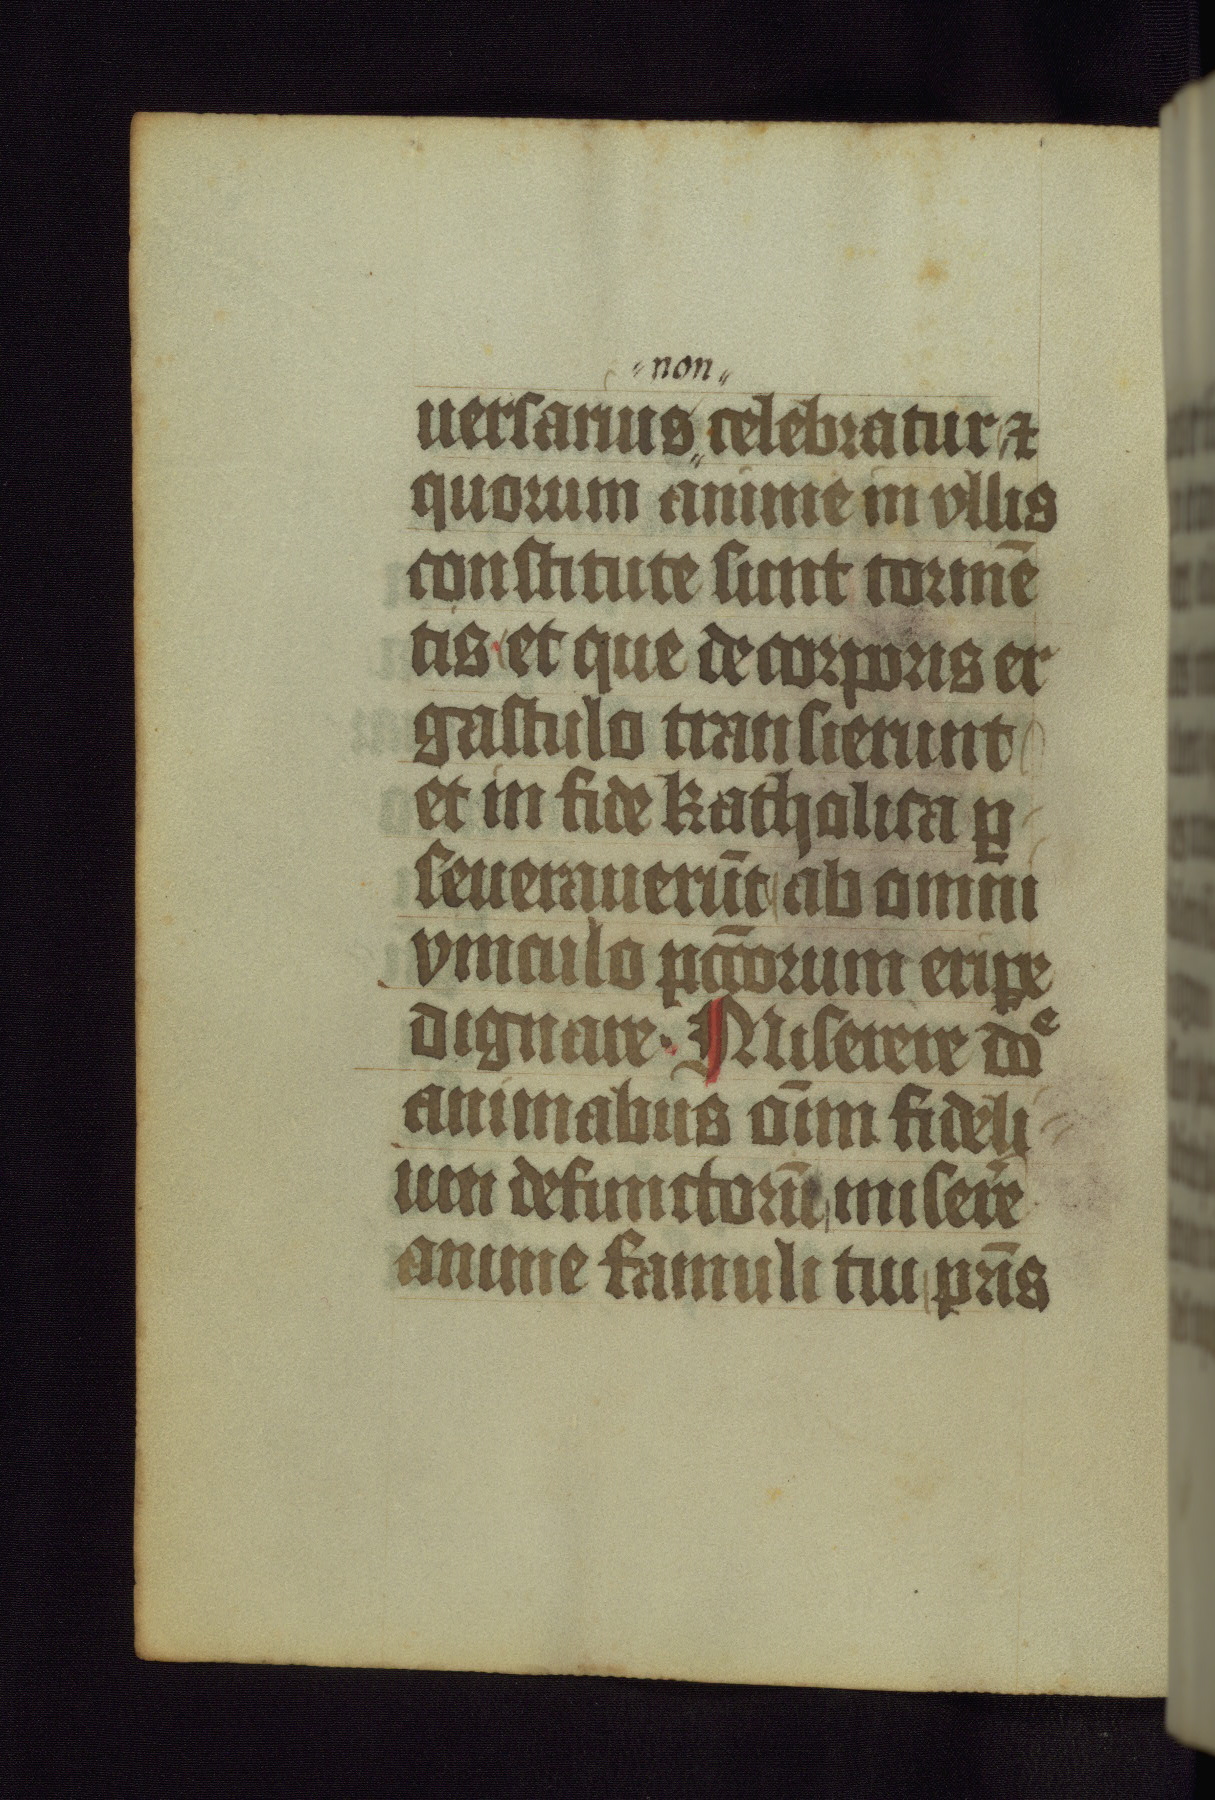 non
uersarius celebratur ⁊
quorum anime in vllis
constitute sunt tormē
tis et que de corporis er
gastulo transierunt
et in fide katholica ꝑ
seuerauerūt ab omni
vinculo pc̄c̄orum eriꝑe
dignare. Miserere doᵉ
animabus oīm fideli
um defunctorū miserē
anime famuli tui pr̄is